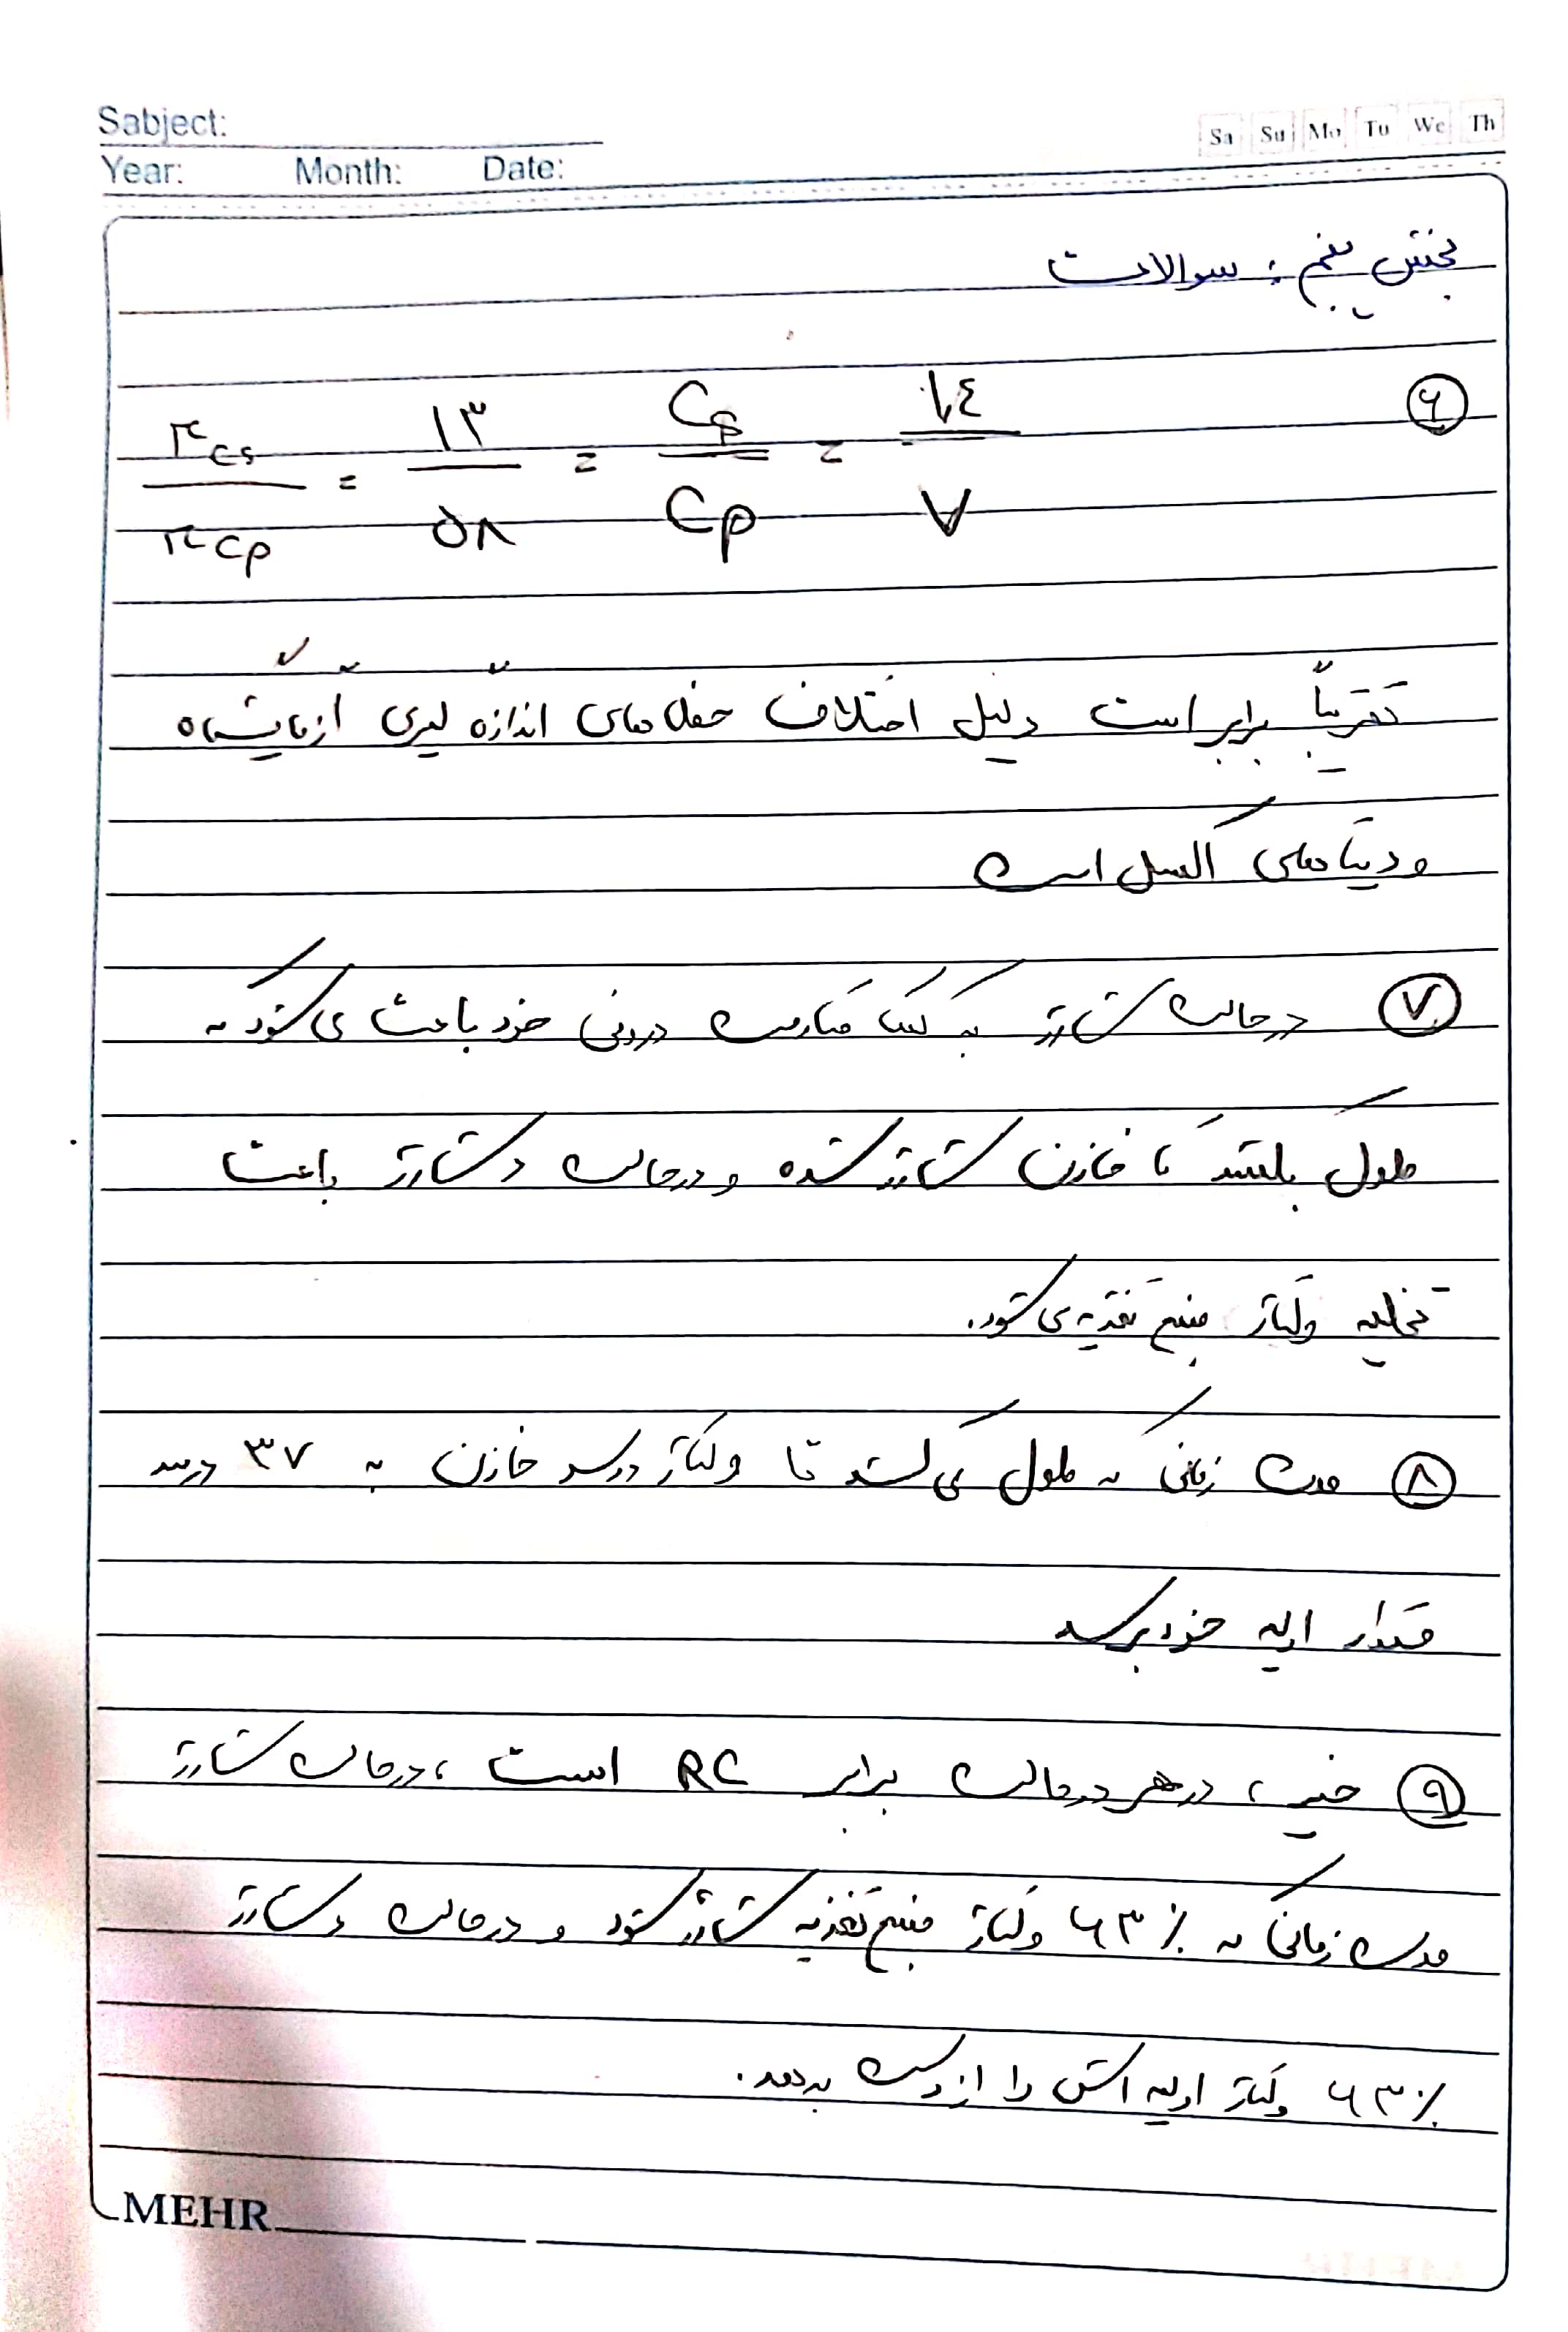 Sabject:
Sa Su Mo Tu We Th
Year: Month: Date:
بخش پنجم : سوالات
۶
τcs / τcp = ۱۳ / ۵۸ = Cs / Cp = / ۷
تقریباً برابر است دلیل اختلاف خطاهای اندازه گیری آزمایشگاه
و دیتاهای اکسل است
۷ در حالت شارژ به کمک مقاومت درونی خود باعث می‌شود که
طول بکشد تا خازن شارژ شده و در حالت دشارژ باعث
تخلیه ولتاژ منبع تغذیه می‌شود.
۸ مدت زمانی که طول می‌کشد تا ولتاژ دو سر خازن به ۳۷ درصد
مقدار اولیه خود برسد
۹ خیر ، در هر دو حالت برابر RC است ، در حالت شارژ
مدت زمانی که ۶۳٪ ولتاژ منبع تغذیه شارژ شود و در حالت دشارژ
۶۳٪ ولتاژ اولیه اش را از دست بدهد.
MEHR